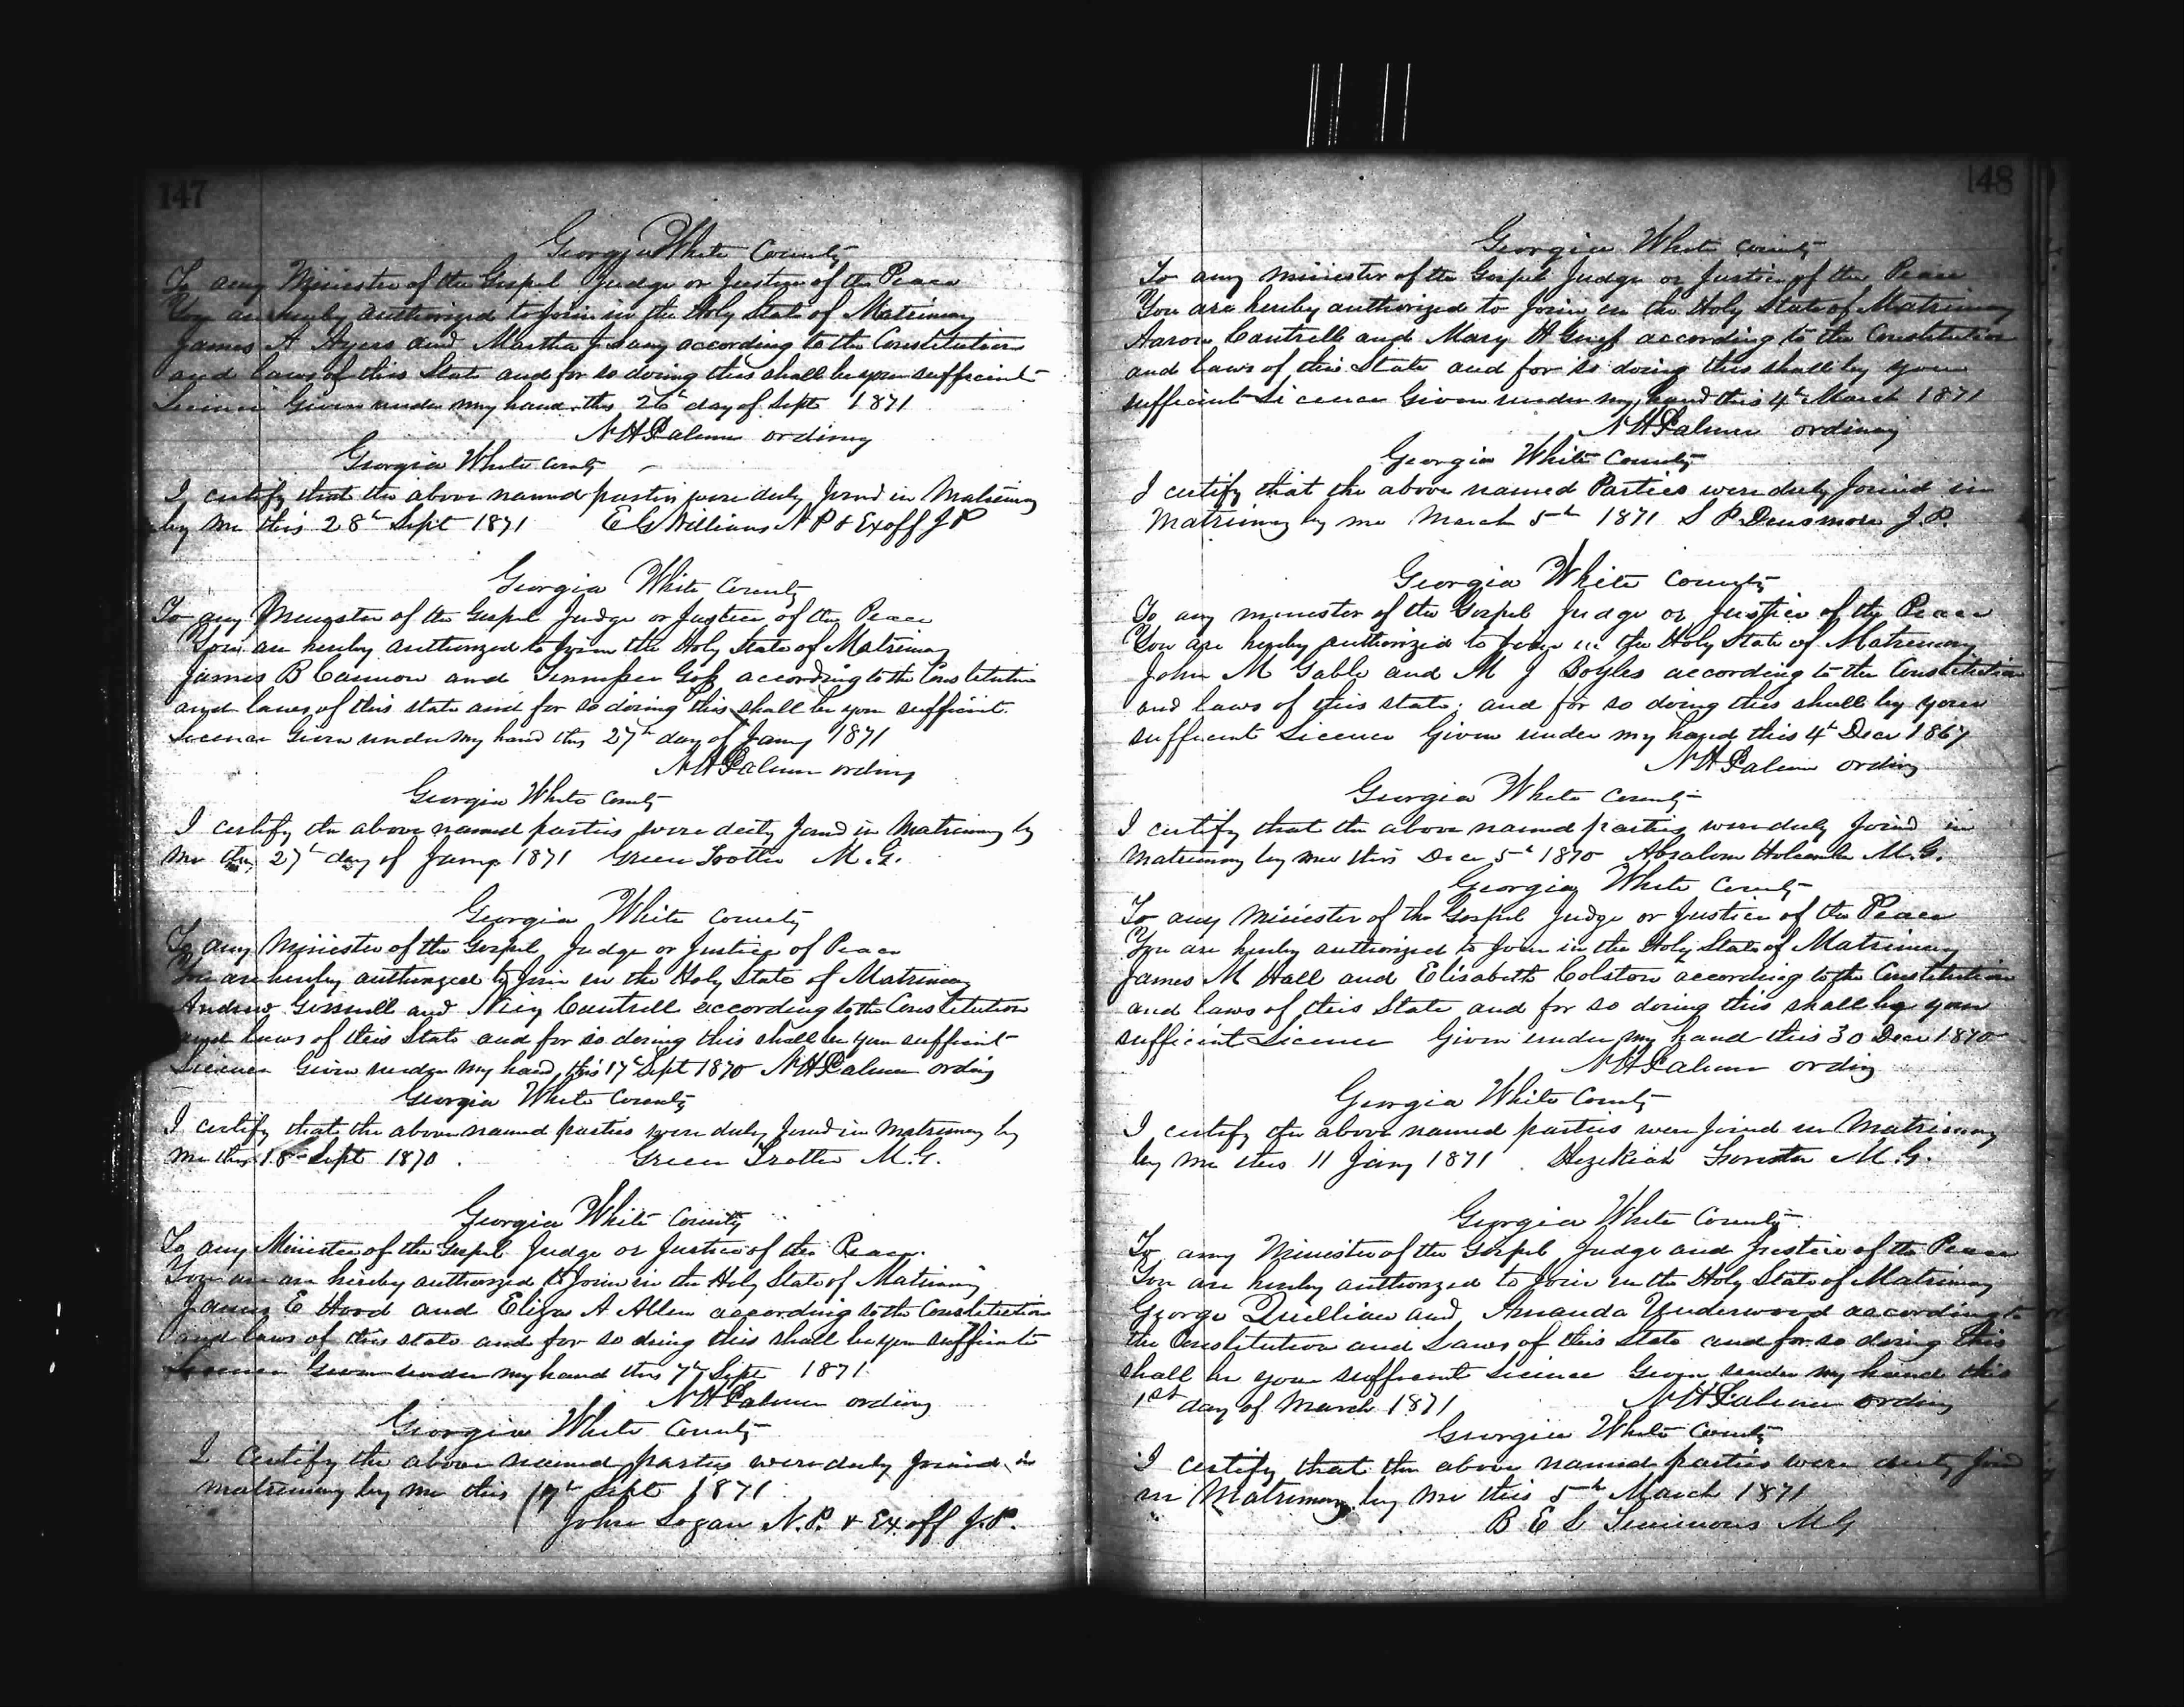 147
Georgia White County
To any Minister of the Gospel Judge or Justice of the Peace
You are hereby authorized to join in the Holy State of Matrimony
James A Ayers and Martha according to the Constitution
and laws of this State and for so doing this shall be your sufficient
Licence Given under my hand this 26th day of Sept 1871
N H Palmer ordinary
Georgia White County
I certify that the above named parties were duly Joined in Matrimony
by me this 28th Sept 1871 E G Williams N P & Exoff J P
Georgia White County
To any of the Gospel Judge or Justice of the Peace
You are hereby authorized to join the Holy State of Matrimony
James B Cannon and according to the Constitution
and laws of this state and for so doing this shall be your sufficient
Licence Given under my hand this 27th day of Jany 1871
N H Palmer
Georgia White County
I certify the above named parties were duly Joined in Matrimony by
me this 27th day of 1871 Green M. G.
Georgia White County
To any Minister of the Gospel Judge or Justice of Peace
You are hereby authorized to Join in the Holy State of Matrimony
Andrew and Cantrell according to the Constitution
and laws of this State and for so doing this shall be your sufficient
Licence Given under my hand this 17th Sept 1870 N H Palmer
Georgia White County
I certify that the above named parties were duly Joined in Matrimony by
me this 18th Sept 1870. Green Trotter M. G.
Georgia White County
To any Minister of the Gospel Judge or Justice of the Peace.
You are are hereby authorized to Join in the Holy State of Matrimony
James E Hood and Eliza A Allen according to the Constitution
and laws of this state and for so doing this shall be your sufficient
Licence Given under my hand this 7th Sept 1871
N H Palmer
Georgia White County
I certify the above named parties were duly Joined in
matrimony by me this Sept 1871.
John Logan N.P. & Ex off J.P.
148
Georgia White County
To any minister of the Gospel Judge or Justice of the Peace
You are hereby authorized to Join in the Holy State of Matrimony
Aaron Cantrell and Mary according to the Constitution
and laws of this State and for so doing this shall by your
sufficient Licence Given under my hand this 4th March 1871
N H Palmer ordinary
Georgia White County
I certify that the above named Parties were duly Joined in
Matrimony by me March 5th 1871 S P Densmore J. P.
Georgia White County
To any minister of the Gospel Judge or Justice of the Peace
You are hereby authorized to in the Holy State of Matrimony
John M Gable and M J Boyles according to the Constitution
and laws of this state; and for so doing this shall by your
sufficient Licence Given under my hand this 4th Decr 1867
N H Palmer
Georgia White County
I certify that the above named parties were duly Joined in
Matrimony by me this Dec 5th 1870 Absalom Holcombe M. G.
Georgia White County
To any Minister of the Gospel Judge or Justice of the Peace
You are hereby authorized to Join in the Holy State of Matrimony
James M Hall and Elisabeth Colston according to the Constitution
and laws of this State and for so doing this shall be your
sufficient Licence Given under my hand this 30 Decr 1870
N H Palmer
Georgia White County
I certify the above named parties were Joined in Matrimony
by me this 11 Jany 1871. Hezekiah M. G.
Georgia White County
To any Minister of the Gospel Judge and Justice of the Peace
You are hereby authorized to Join in the Holy State of Matrimony
George Quillian and Amanda Underwood according to
the Constitution and Laws of this State and for so doing this
shall be your sufficient Licence Given under my hand this
1st day of March 1871 N H Palmer
Georgia White County
I certify that the above named parties were duly
in Matrimony by me this 5th March 1871
B E L Timmons M G